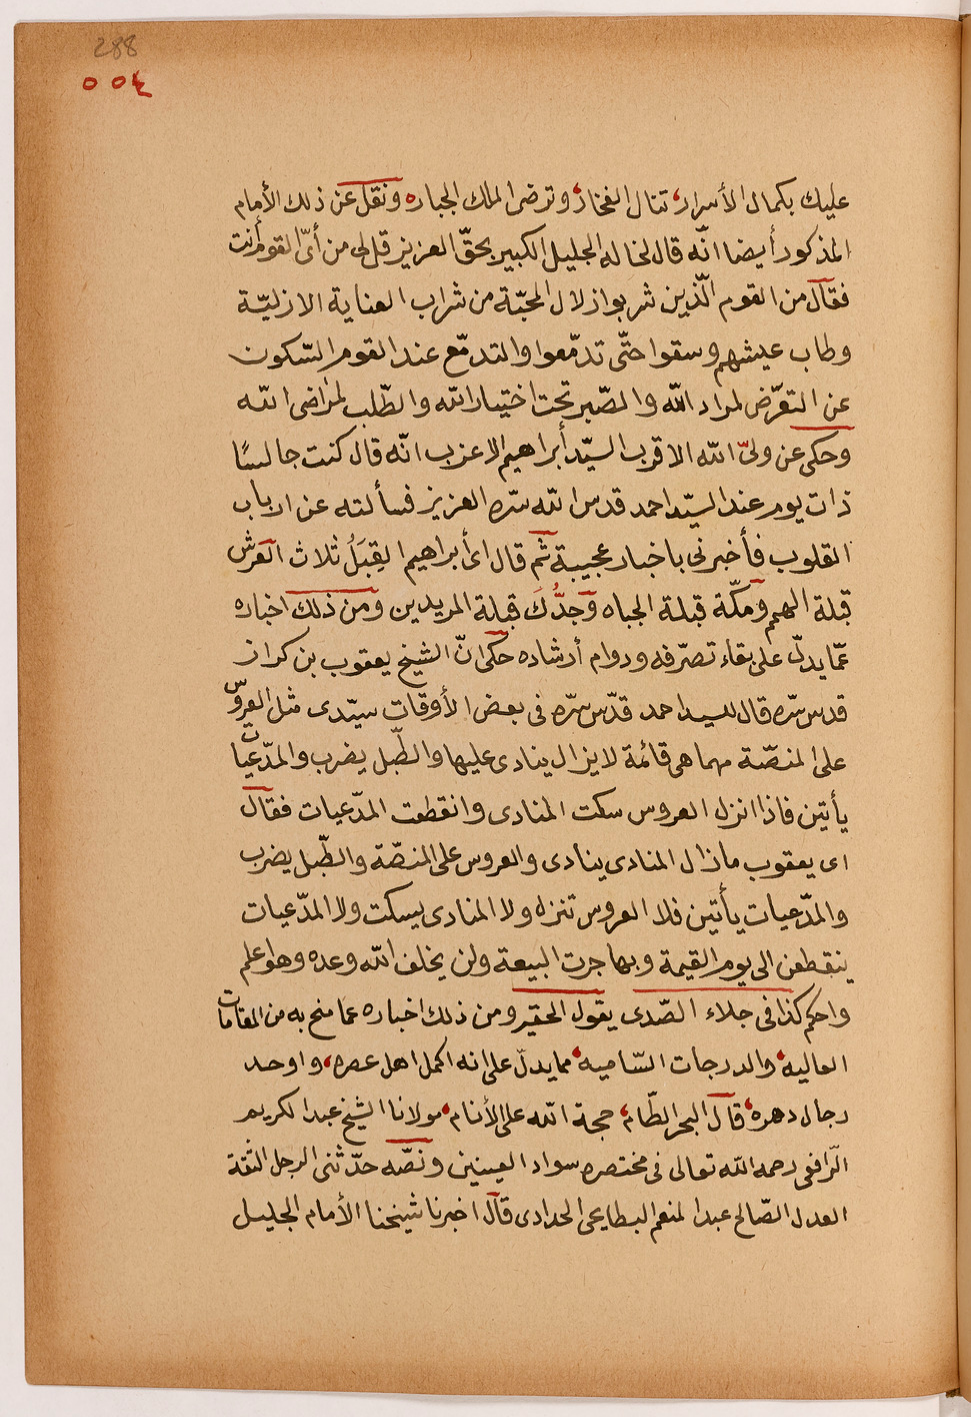 288
٥٥٤
عليك بكمال الأسرار، تنال الفخار، وترضى الملك الجبار، ونقل عن ذلك الأمام
المذكور أيضا انّه قال لخاله الجليل الكبير بحقّ العزيز قل لى من أىّ القوم أنت
فقال من القوم الّذين شربوا زلال المحبّة من شراب العناية الازليّة
وطاب عيشهم وسقوا حتّى تدمّعوا والتدمّع عند القوم السّكون
عن التعرّض لمراد الله والصّبر تحت اختيار الله والطّلب لمراضى الله
وحكى عن ولىّ الله الاقرب السيّد أبراهيم الاعزب انّه قال كنت جالسًا
ذات يوم عند السيّد احمد قدس الله سّره العزيز فسألته عن ارباب
القلوب فأخبرنى باخبار عجيبة ثم قال اى أبراهيم القِبَلُ ثلاث العرش
قبّلة الهمم ومكّة قبلة الجباه وَجدُّكَ قبلة المريدين ومن ذلك اخباره
عمّا يدلّ على بقاء تصرّفه ودوام أرشاده حكى انّ الشيخ يعقوب بن كراز
قدس سّره قال للسيد احمد قدّس سّره فى بعض الأوقات سيّدى مثل العروس
على المنصّة مهما هى قائمة لا يزال ينادى عليها والطّبل يضرب والمدّعيات
يأتين فاذا انزل العروس سكت المنادى وانقطعت المدّعيات فقال
اى يعقوب مازال المنادى ينادى والعروس على المنصّة والطّبل يضرب
والمدّعيات يأتين فلا العروس تنزل ولا المنادى يسكت ولا المدّعيات
ينقطعن الى يوم القيمة وبها جرت البيعة ولن يخلف الله وعده وهو اعلم
واحكم كذا فى جلاء الصّدى يقول الحقير ومن ذلك اخباره عما منح به من المقامات
العاليه، والدرجات السّاميه، مما يدلّ على انه اكمل اهل عصره، واوحد
رجال دهره، قال البحر الطّام، حجة الله على الأنام، مولانا الشيخ عبد الكريم
الرّافعى رحمه الله تعالى فى مختصره سواد العينين ونصّه حدّثنى الرجل الثقة
العدل الصّالح عبد المنعم البطايحى الحدادى قال اخبرنا شيخنا الأمام الجليل